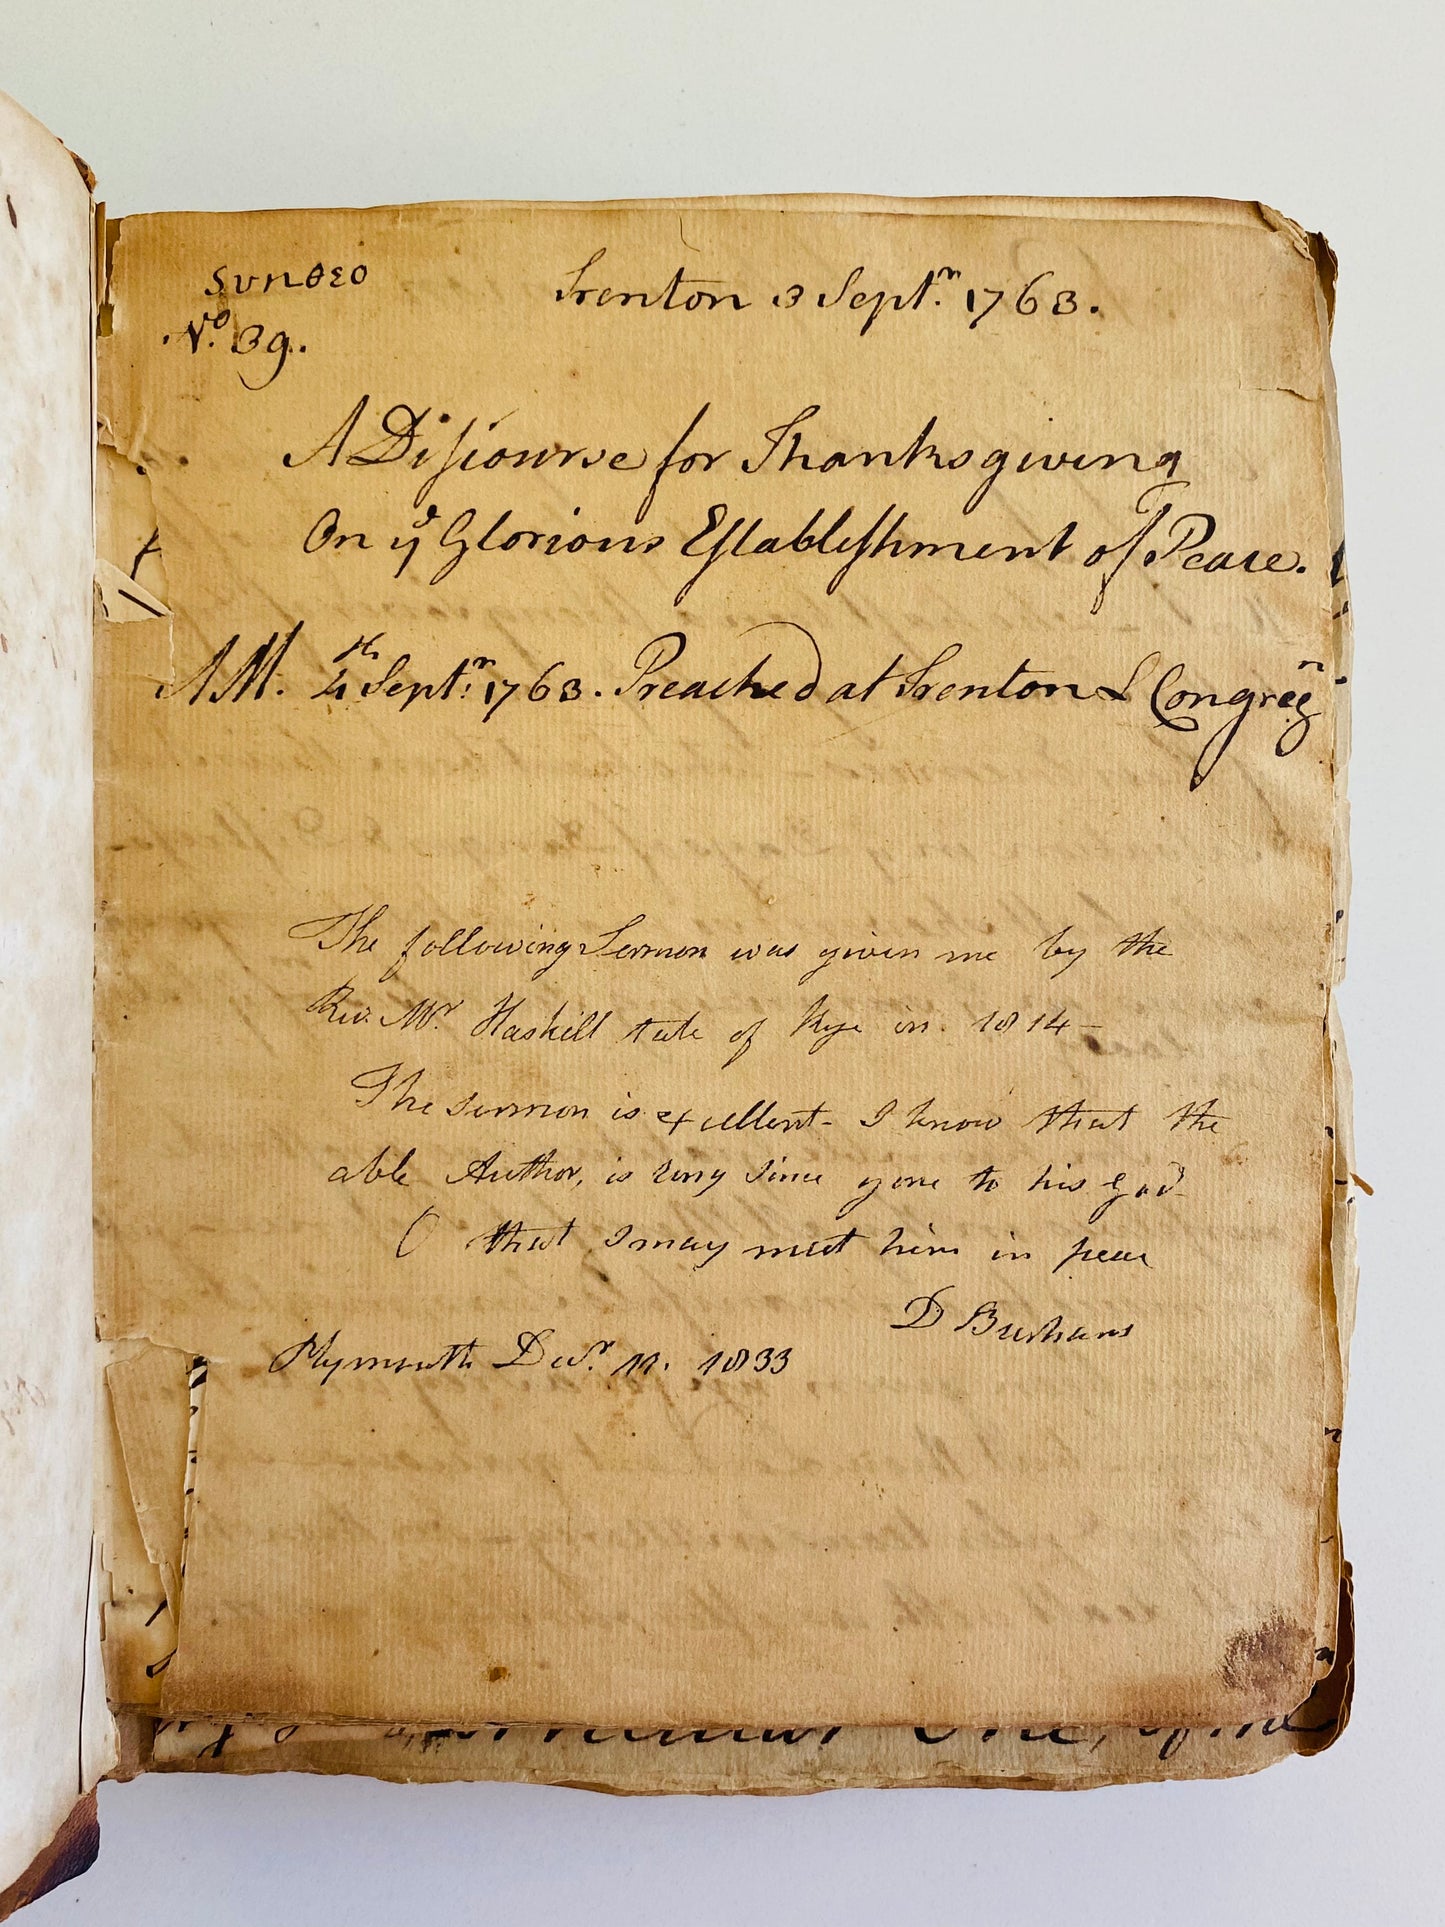 συnθεο
Trenton 3 Septr. 1763.
No. 39.
A Discourse for Thanksgiving
On ye Glorious Establishment of Peace.
AM. 4th Septr. 1763. Preached at Trenton L Congregn
The following Sermon was given me by the
Rev. Mr. Haskill late of Rye in 1814-
The sermon is excellent- I know that the
able Author, is long since gone to his God-
O that I may meet him in peace
D Burhans
Plymouth Decr. 11. 1833